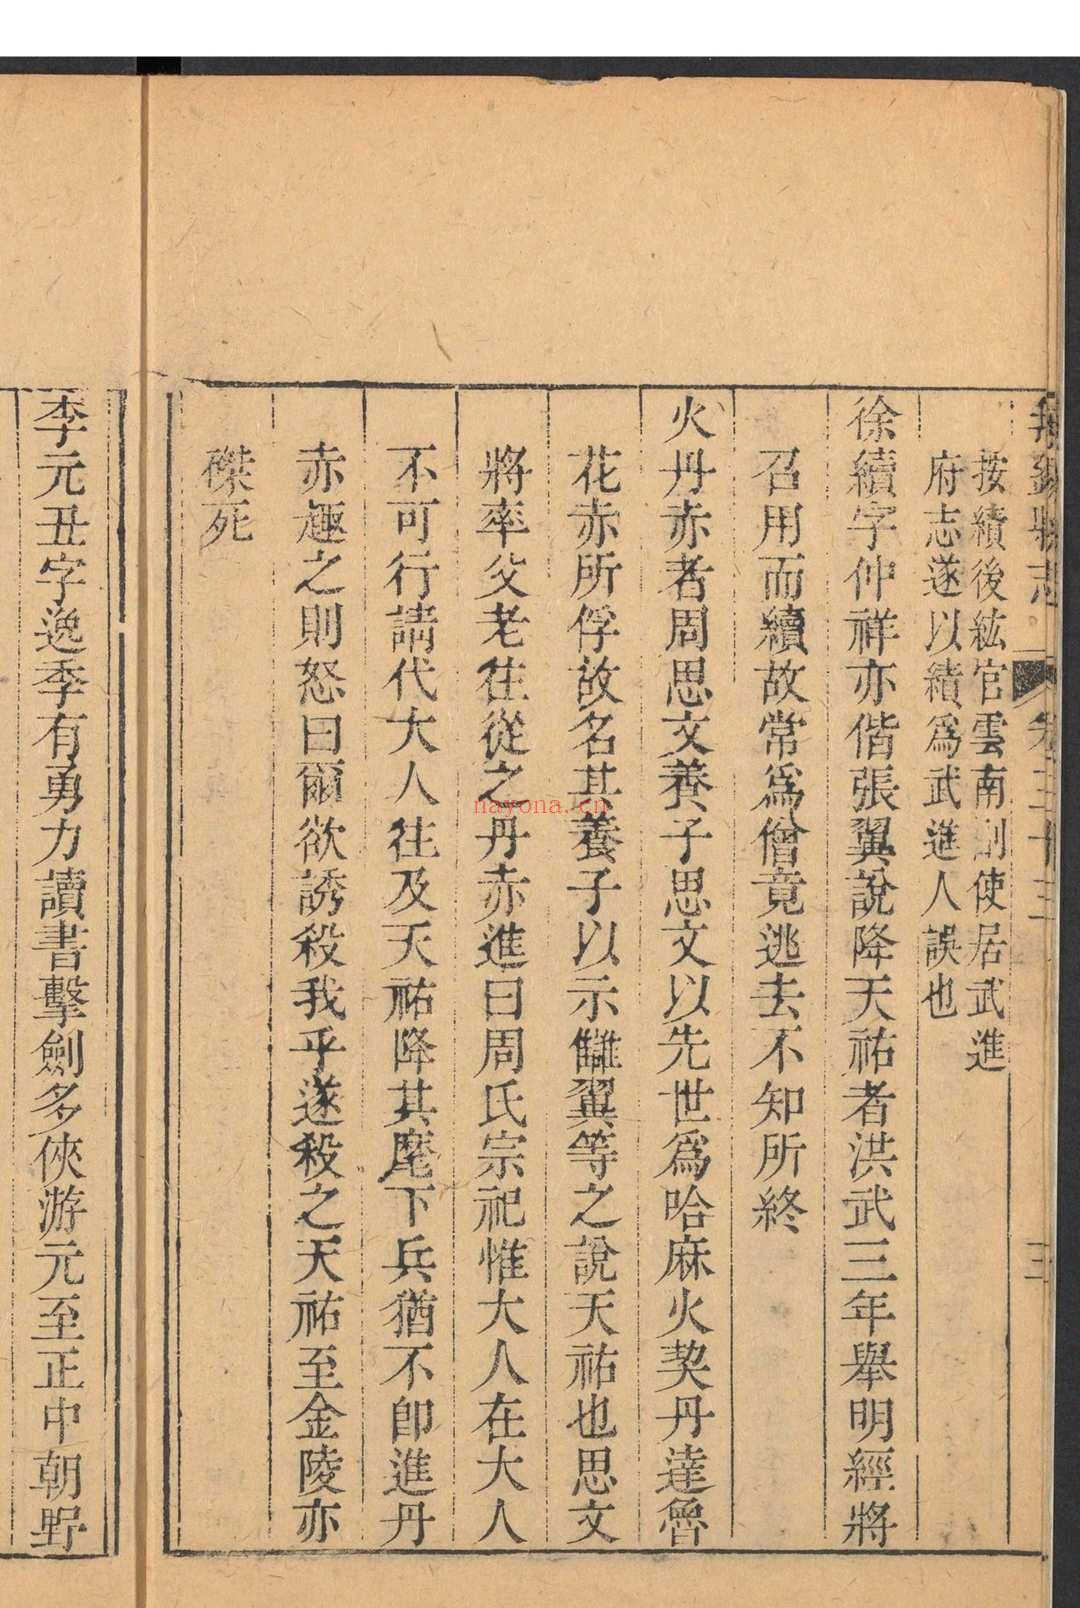 無錫縣志　卷三十三　三
按績後紘官雲南副使居武進
府志遂以績為武進人誤也
徐續字仲祥亦偕張翼說降天祐者洪武三年舉明經將
召用而續故常為僧竟逃去不知所終
火丹赤者周思文養子思文以先世為哈麻火契丹達魯
花赤所俘故名其養子以示讎翼等之說天祐也思文
將率父老往從之丹赤進曰周氏宗祀惟大人在大人
不可行請代大人往及天祐降其麾下兵猶不卽進丹
赤趣之則怒曰爾欲誘殺我乎遂殺之天祐至金陵亦
磔死
李元丑字逸季有勇力讀書擊劍多俠游元至正中朝野
nayona.cn